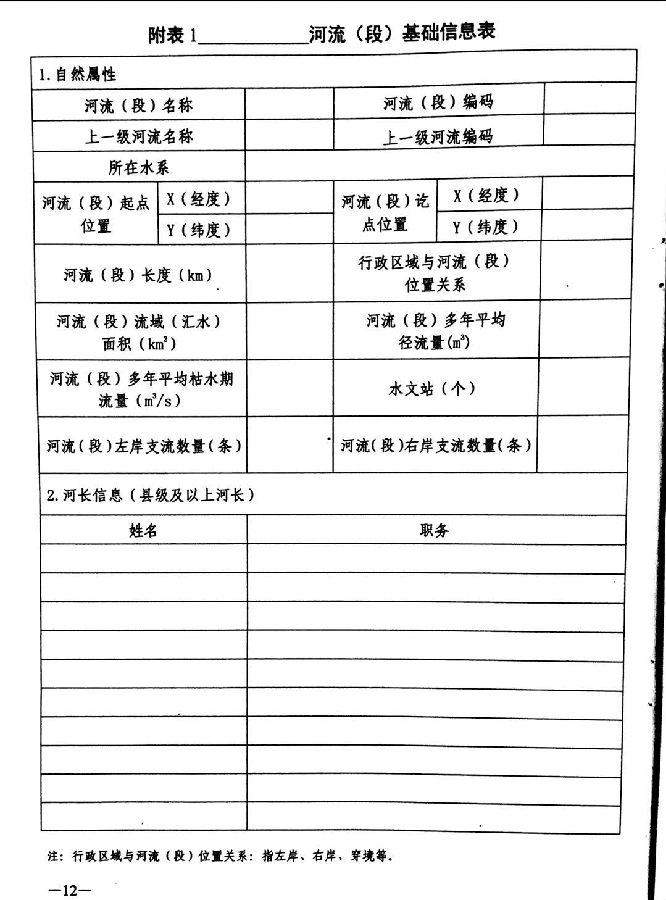 附表1____________河流（段）基础信息表
1.自然属性
河流（段）名称 河流（段）编码
上一级河流名称 上一级河流编码
所在水系
河流（段）起点 X（经度） 河流（段）讫 X（经度）
位置 Y（纬度） 点位置 Y（纬度）
河流（段）长度（km） 行政区域与河流（段）
位置关系
河流（段）流域（汇水） 河流（段）多年平均
面积（km²） 径流量(m³)
河流（段）多年平均枯水期 水文站（个）
流量（m³/s）
河流(段)左岸支流数量(条) 河流(段)右岸支流数量(条)
2.河长信息（县级及以上河长）
姓名 职务
注：行政区域与河流（段）位置关系：指左岸、右岸、穿境等.
—12—